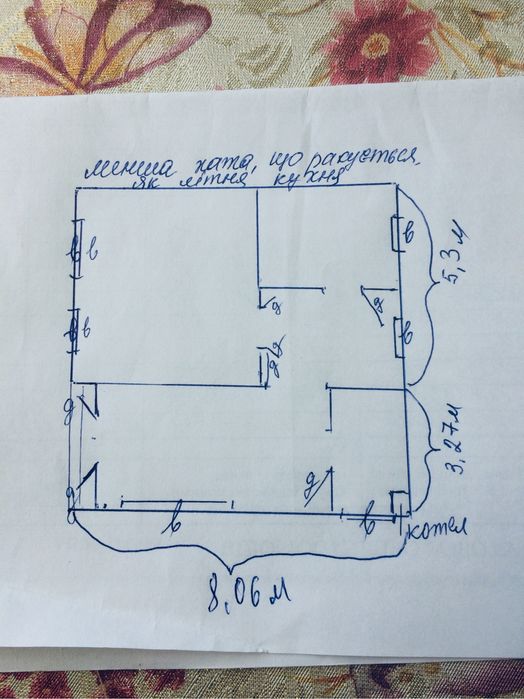 менша хата, що рахується,
як літня кухня
в
в
в
5,3 м
в
в
в
g
g
g
g
g
g
3,27 м
g
в
в
котел
8,06 м